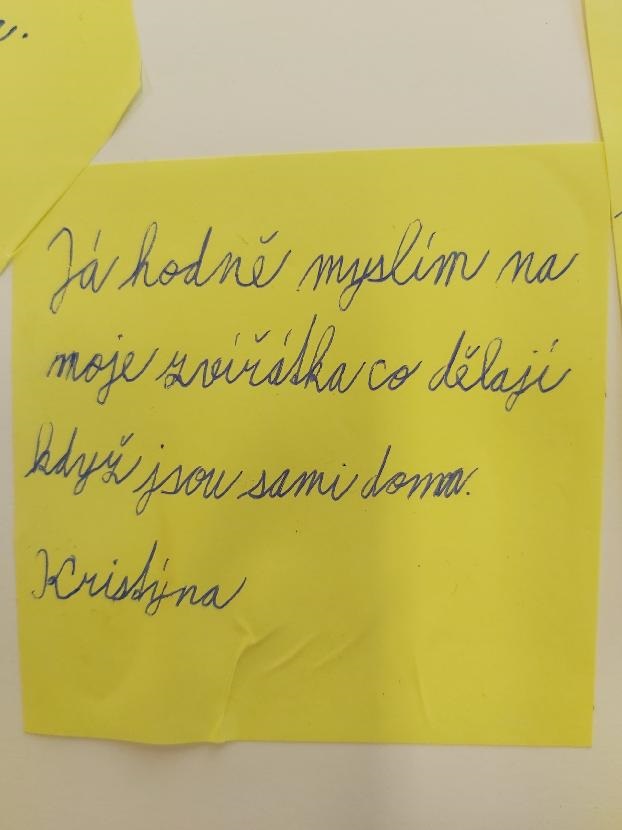 Já hodně myslím na
moje zvířátka co dělají
když jsou sami doma.
Kristýna